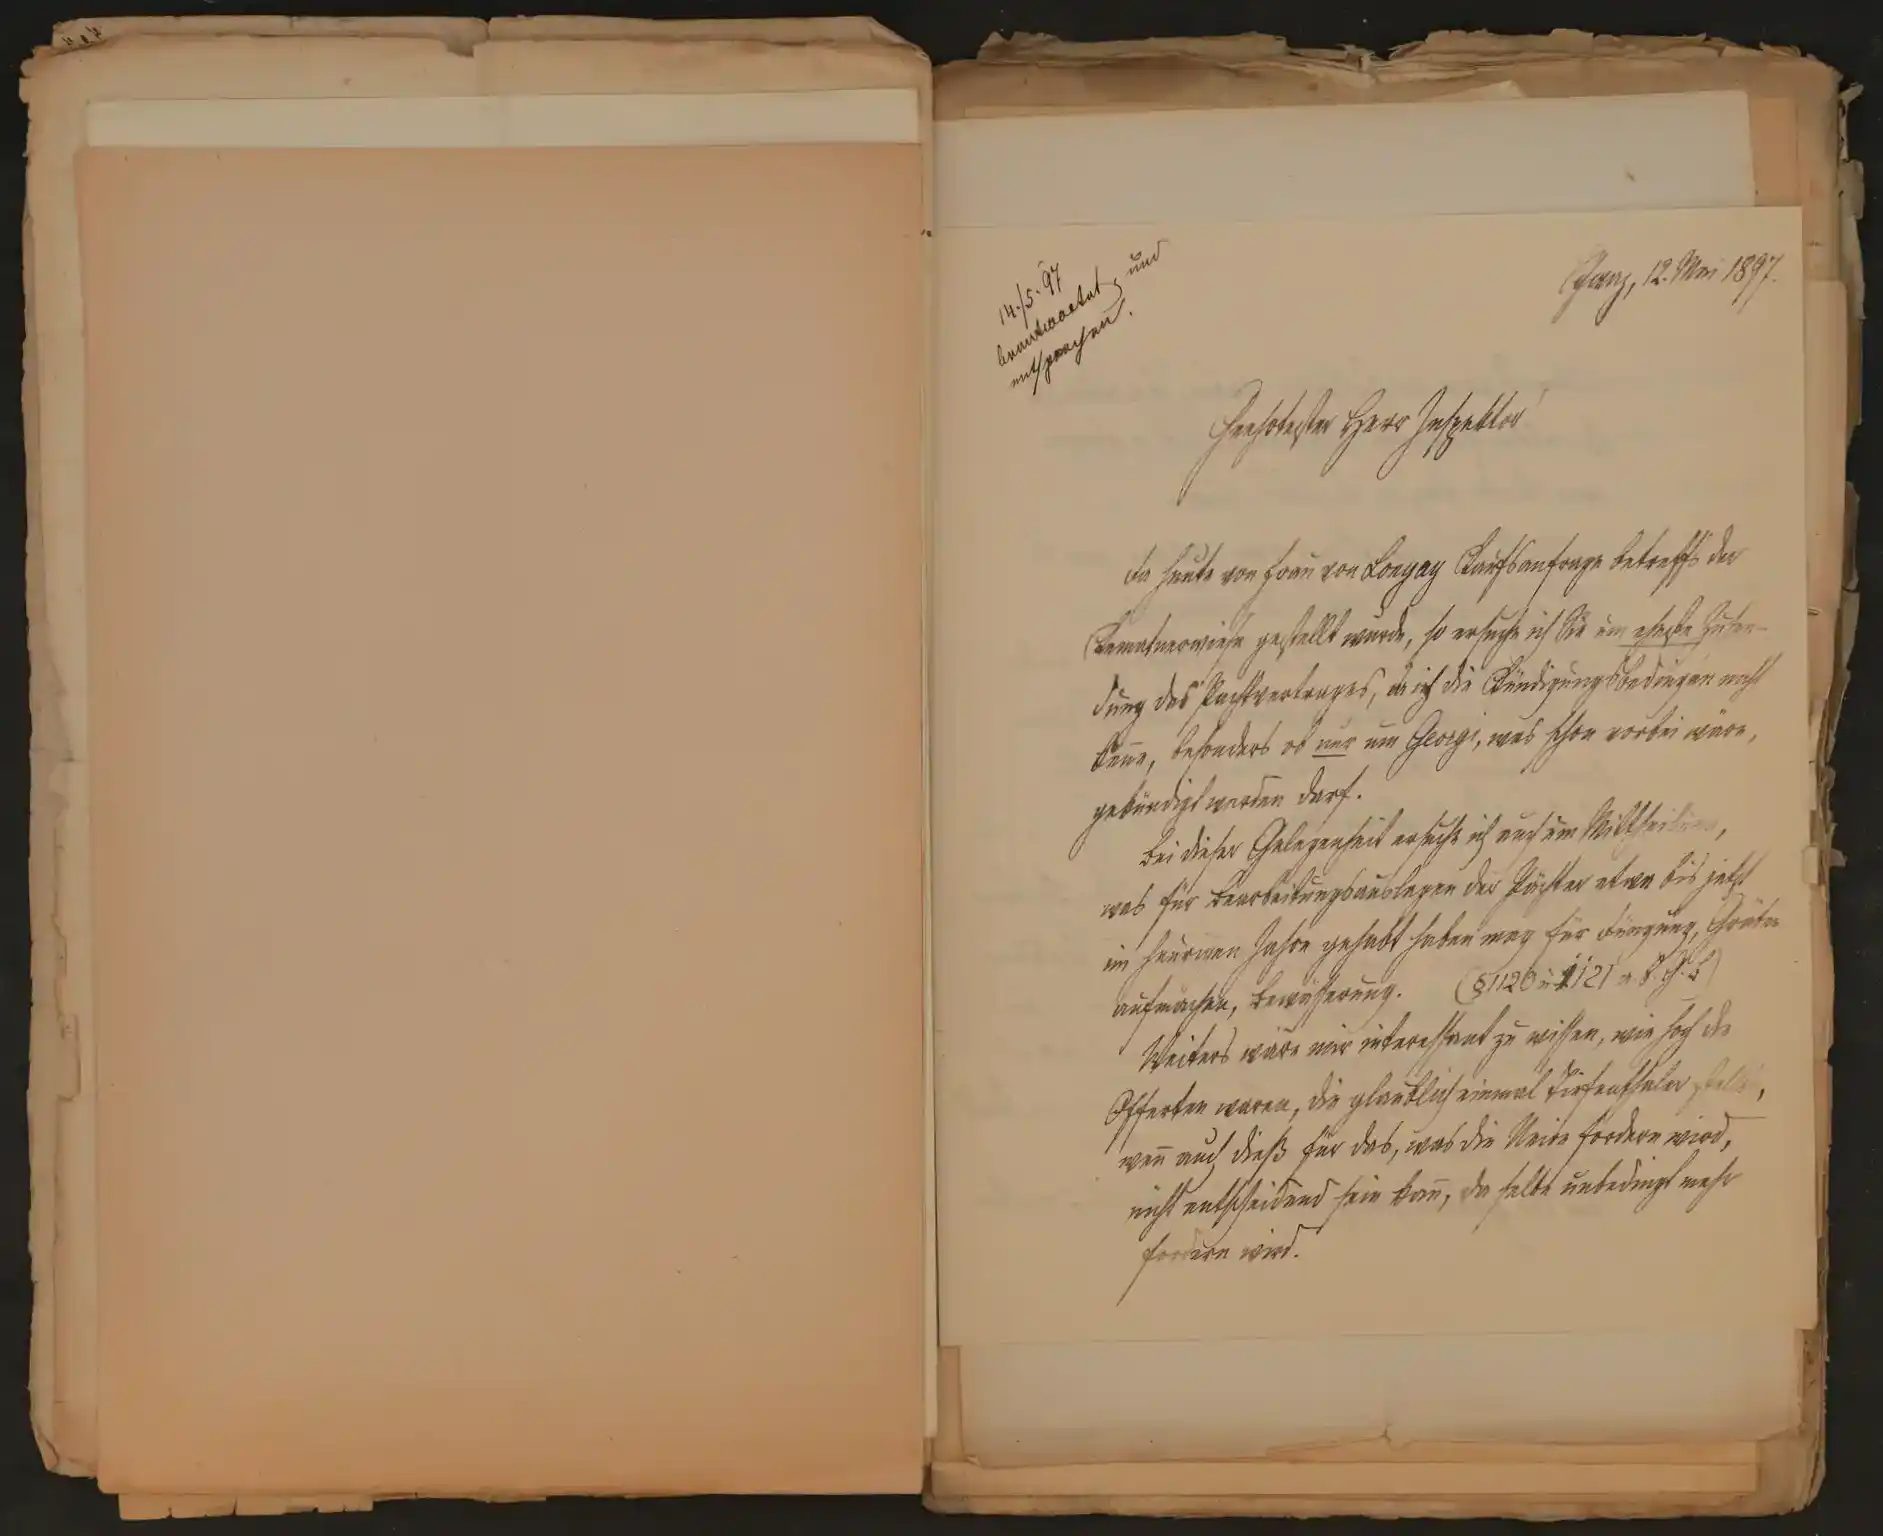 14./5. 97
beantwortet und
entsprochen.
Graz, 12. Mai 1897.
Geehrtester Herr Inspektor!
Da heute von Frau von Lonyay Kaufsanfrage betreffs der
Kematnerwiese gestellt wurde, so ersuche ich Sie um eheste Zusen-
dung des Pachtvertrages, da ich die Kündigungsbedingen nicht
kenne, besonders ob nur um Georgi, was schon vorbei wäre,
gekündigt werden darf.
Bei dieser Gelegenheit ersuche ich auch um Mittheilung,
was für Bearbeitungsauslagen der Pächter etwa bis jetzt
im heurigen Jahre gehabt haben mag für Düngung, Gräben
aufmachen, Bewässerung. (§ 1120 u 1121 a. b. G. B)
Weiters wäre mir interessant zu wissen, wie hoch die
Offerten waren, die glaublich einmal Tiefenthaler stellte,
wenn auch dieß für das, was die Neue fordern wird,
nicht entscheidend sein kann, da selbe unbedingt mehr
fordern wird.